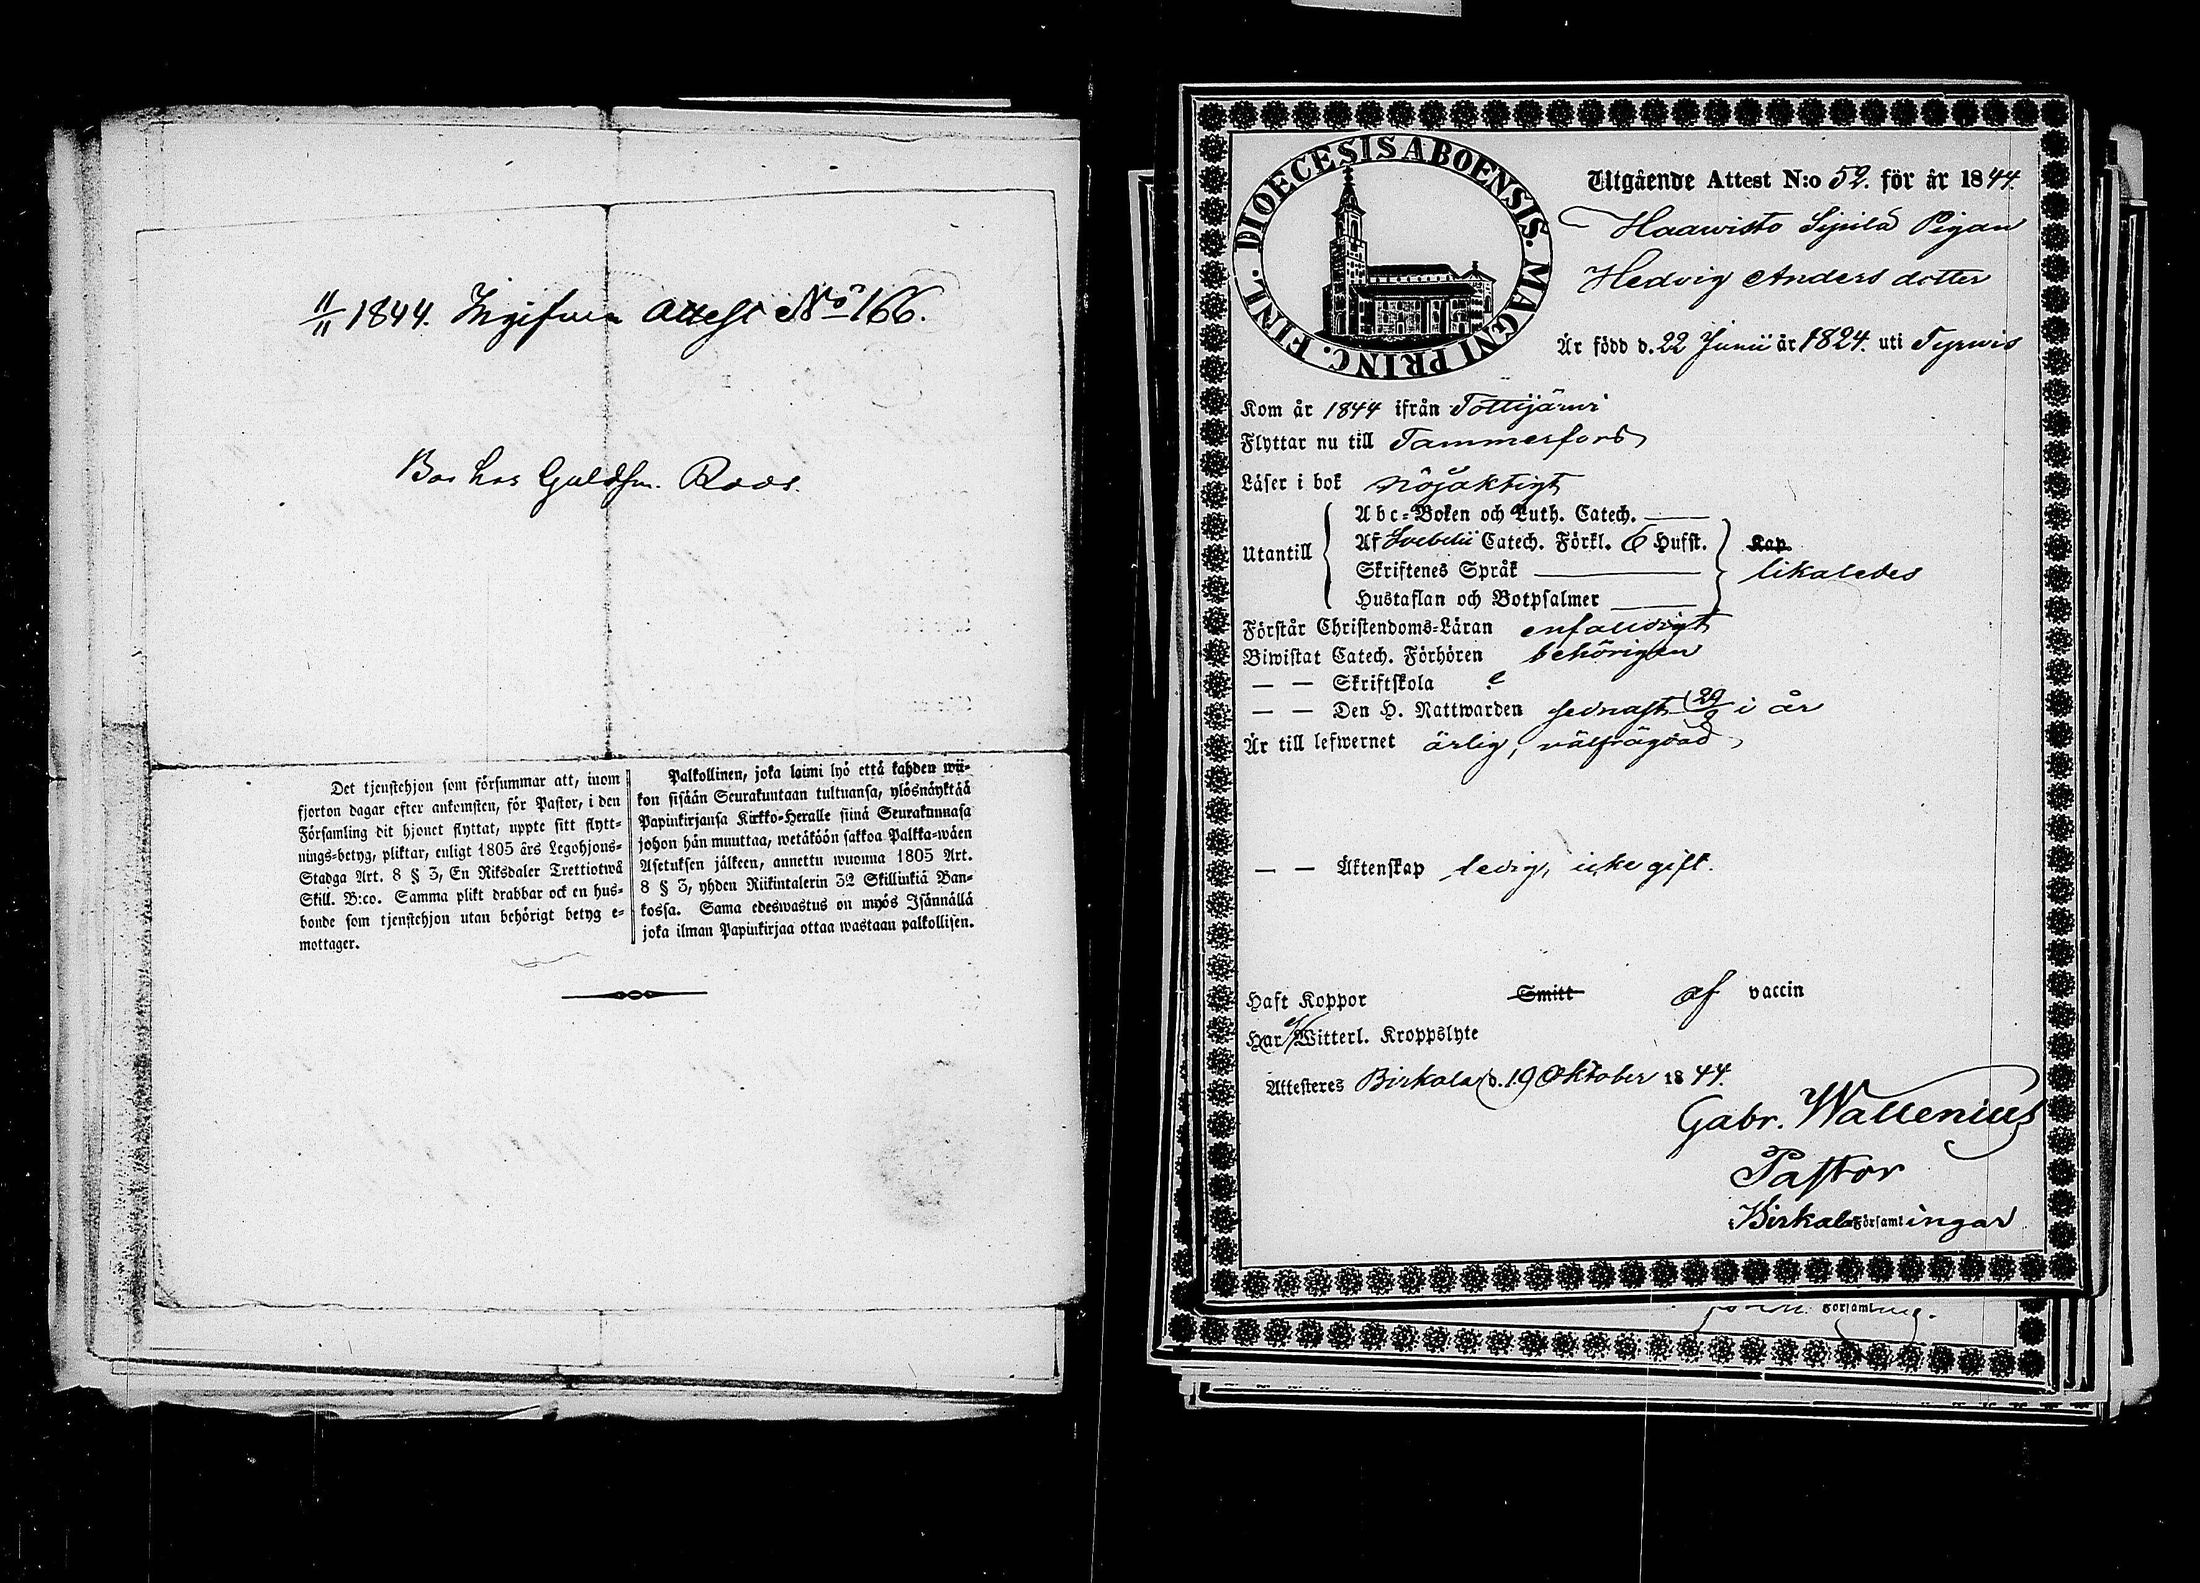 11/11 1844. Ingifven Attest No 166.
Bor hos Guldsm. Roos.
Det tjenstehjon som försummar att, inom
fjorton dagar efter ankomsten, för Pastor, i den
Församling dit hjonet flyttat, uppte sitt flytt-
nings-betyg, pliktar, enligt 1805 års Legohjons-
Stadga Art. 8 § 3, En Riksdaler Trettiotwå
Skill. B:co. Samma plikt drabbar ock en hus-
bonde som tjenstehjon utan behörigt betyg e-
mottager.
Palkollinen, joka laimi lyö että kahden wii-
kon sisään Seurakuntaan tultuansa, ylösnäyktää
Papinkirjansa Kirkko-Heralle siinä Seurakunnasa
johon hän muuttaa, wetäköön sakkoa Palkka-wäen
Asetuksen jälkeen, annettu wuonna 1805 Art.
8 § 3, yhden Riikintalerin 32 Skillinkiä Ban-
kossa. Sama edeswastus on myös Isännällä
joka ilman Papinkirjaa ottaa wastaan palkollisen.
DIOECESIS ABOENSIS. MAGNI PRINC. FINL.
Utgående Attest N:o 52. för år 1844.
Haawisto Sipilä Pigan
Hedvig Anders dotter
Är född d. 22 Junii år 1824. uti Tyrwis
Kom år 1844 ifrån Tottijärwi
Flyttar nu till Tammerfors
Läser i bok nöjaktigt
Abc-Boken och Luth. Catech.
Utantill Af Svebelii Catech. Förkl. 6 Hufst. Kap
Skriftenes Språk likaledes
Hustaflan och Botpsalmer
Förstår Christendoms-Läran enfaldigt
Biwistat Catech. Förhören behörigen
— — Skriftskola
— — Den H. Nattwarden sednast 29/9 i år
Är till lefwernet ärlig, välfrägdad
— — Äktenskap ledig, icke gift.
Haft Koppor Smitt af vaccin
Har ej Witterl. Kroppslyte
Attesteres Birkala d. 19 Oktober 1844.
Gabr. Wallenius
Pastor
i Birkala Församlingar
Församling.